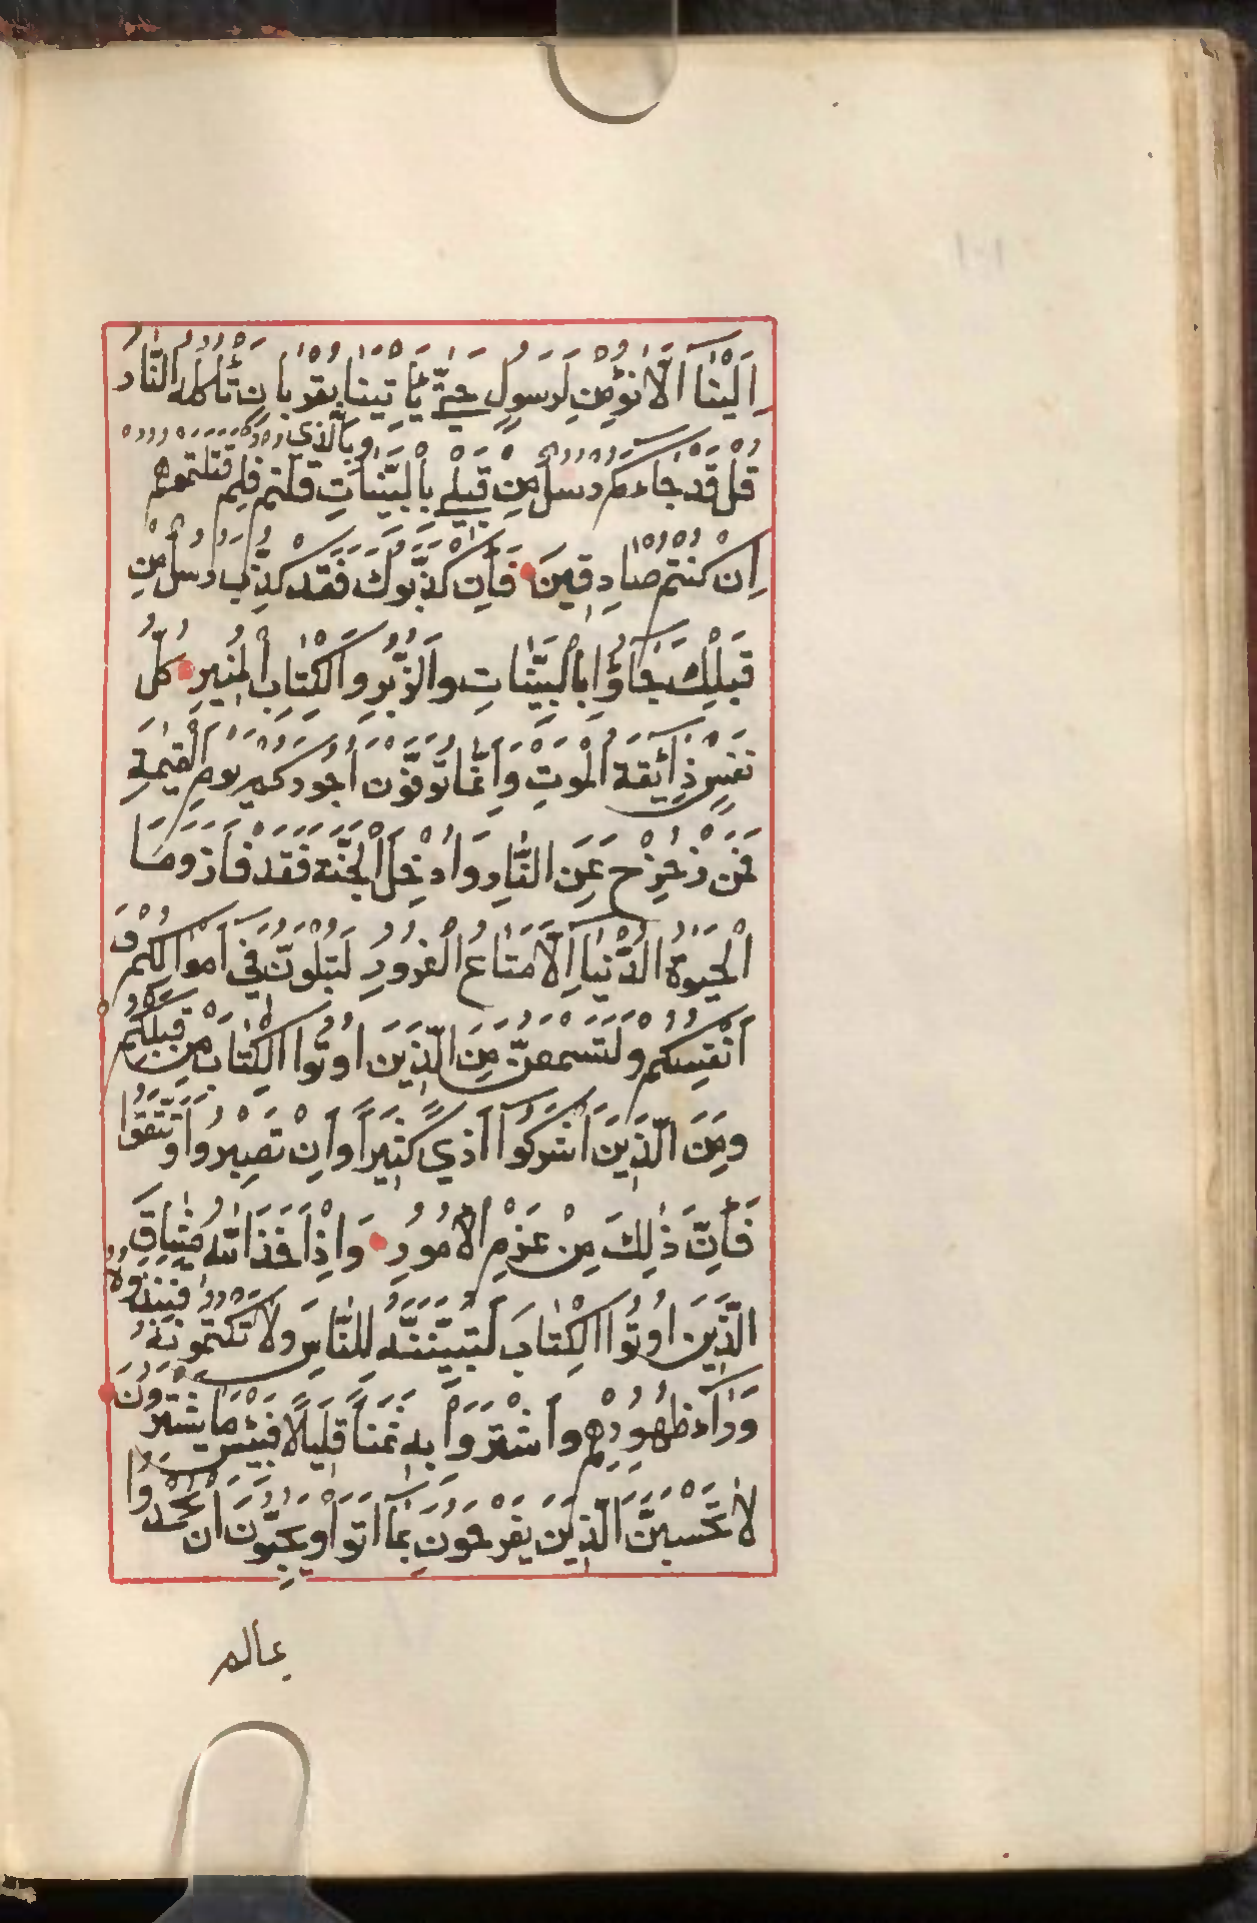 اِلَيْنَآ اَلَّا نُؤْمِنَ لِرَسُولٍ حَتّٰي يَأْتِيَنَا بِقُرْبَانٍ تَأْكُلُهُ النَّارُ
قُلْ قَدْ جَاءَكُمْ رُسُلٌ مِنْ قَبْلِي بِالْبَيِّنَاتِ وَبِالَّذِي قُلْتُمْ فَلِمَ قَتَلْتُمُوهُمْ
اِنْ كُنْتُمْ صَادِقِينَ فَاِنْ كَذَّبُوكَ فَقَدْ كُذِّبَ رُسُلٌ مِنْ
قَبْلِكَ جَآؤُا بِالْبَيِّنَاتِ وَالزُّبُرِ وَالْكِتَابِ الْمُنِيرِ كُلُّ
نَفْسٍ ذَآئِقَةُ الْمَوْتِ وَاِنَّمَا تُوَفَّوْنَ اُجُورَكُمْ يَوْمَ الْقِيٰمَةِ
فَمَنْ زُحْزِحَ عَنِ النَّارِ وَاُدْخِلَ الْجَنَّةَ فَقَدْ فَازَ وَمَا
الْحَيٰوةُ الدُّنْيَا اِلَّا مَتَاعُ الْغُرُورِ لَتُبْلَوُنَّ فِي اَمْوَالِكُمْ وَ
اَنْفُسِكُمْ وَلَتَسْمَعُنَّ مِنَ الَّذِينَ اُوتُوا الْكِتَابَ مِنْ قَبْلِكُمْ
وَمِنَ الَّذِينَ اَشْرَكُوٓا اَذًي كَثِيرًا وَاِنْ تَصْبِرُوا وَتَتَّقُوا
فَاِنَّ ذٰلِكَ مِنْ عَزْمِ الْاُمُورِ وَاِذْ اَخَذَ اللّٰهُ مِيثَاقَ
الَّذِينَ اُوتُوا الْكِتَابَ لَتُبَيِّنُنَّهُ لِلنَّاسِ وَلَا تَكْتُمُونَهُ فَنَبَذُوهُ
وَرَآءَ ظُهُورِهِمْ وَاشْتَرَوْا بِهِ ثَمَنًا قَلِيلًا فَبِئْسَ مَا يَشْتَرُونَ
لَا تَحْسَبَنَّ الَّذِينَ يَفْرَحُونَ بِمَآ اَتَوْا وَيُحِبُّونَ اَنْ يُحْمَدُوا
بمالم